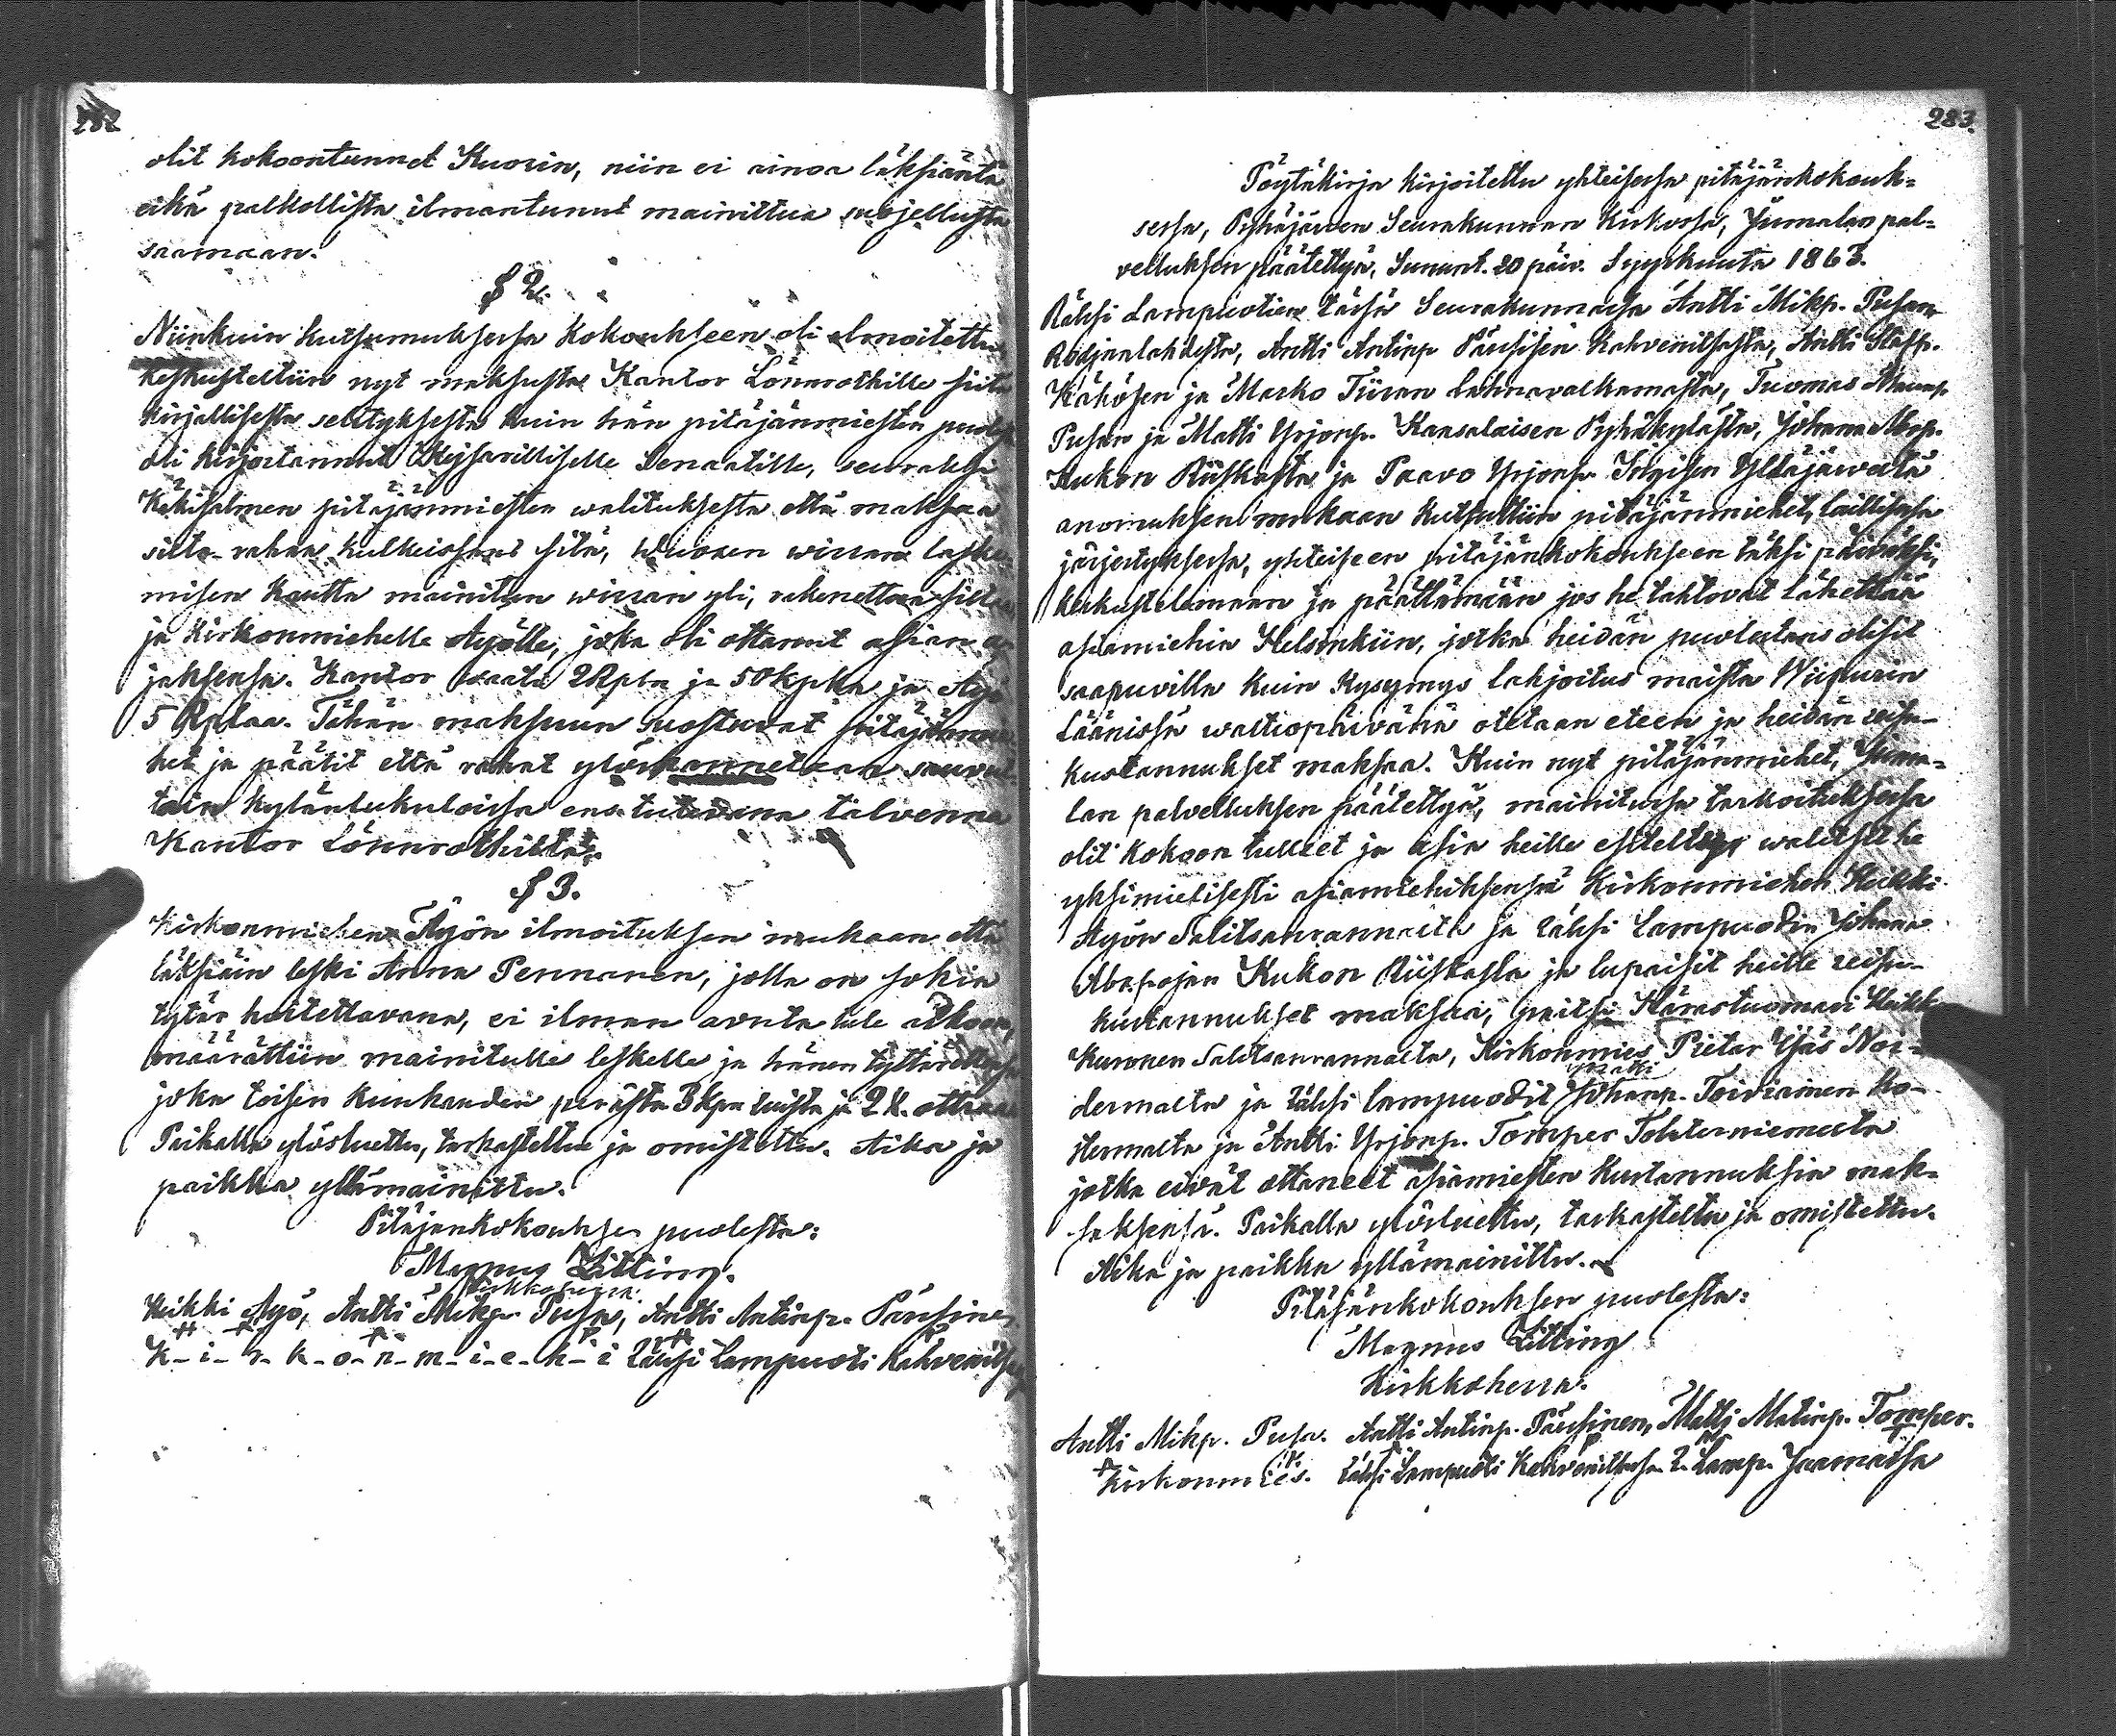 282
olit kokoontunnet Kuorin, niin ei ainoa läksiäntä
eikä palkollista ilmantunnut mainittua suojellusta
saamaan.
§ 2.
Niinkuin kutsumuksessa Kokoukseen oli ilmoitettu
keskusteltiin nyt maksusta Kantor Lönnrothille siitä
kirjallisesta selityksestä kuin hän pitäjänmiesten puolesta
oli kirjoitannut Keisarilliselle Senaatille,
Käkisalmen pitäjänmiesten walituksesta että maksaa
silta-rahaa kulkeissans sitä, Wuoxen wirran laske-
misen kautta mainitun wirran yli, rakenettua siltaa
ja kirkonmiehelle Ayölle, joka oli ottannut asian
jaksensa. Kantor 2 Rpla ja 50 kpka ja Ayö
5 Rplaa. Tähän maksuun suostuvat pitäjänmie-
het ja päätit että rahat ylöskannetaan
tain kylänlukuloissa ens. tulevana talvenna
Kantor Lönnrothilta.
§ 3.
Kirkonmiehen Äyön ilmoituksen mukaan että
läksiäin leski Anna Pennanen, jolla on sokia
tytär hoitettavana, ei ilman avuta tule aikoon,
määrättiin mainitulle leskelle ja hänen tyttärellensä
joka toisen kuukauden perästä 3 kpa ruista ja 2 k. ottraa
Paikalla ylösluettu, tarkastettu ja omistettu. Aika ja
paikka yllämainittu.
Pitäjänkokouksen puolesta:
Magnus Litting.
Kirkkoherra.
Heikki Ayö, Antti Mikp. Pusa, Antti Antinp. Päusinen
K-i-r-k-o-n-m-i-e-h-i Läksi Lampuoti Kahvenitsa
283.
Pöytäkirja kirjoitettu yhteisessa pitäjänkokouk-
sessa, Pyhäjärven Seurakunnan Kirkossa, Jumalan pal-
velluksen päätettyä, Sunnt. 20 päiv. Syyskuuta 1863.
Läksi Lampuotien tässä Seurakunnassa Antti Mikp. Pusan
Rodjanlahdesta, Antti Antinp Päusisen Kahvenitsasta, Antti Staff.
Kähösen ja Marko Tiiran Lahnavalkamasta, Tuomas
Pusan ja Matti Yrjönp. Kansalaisen Pyhäkylästä, Johana Abrp.
Kukon Riiskasta ja Paavo Yrjönp. Ylläjärveltä
anomuksen mukaan kutsuttiin pitäjänmiehet, laillisessa
järjestyksessa, yhteiseen pitäjänkokoukseen täksi päiväksi,
keskustelemaan ja päättämään jos he tahtovat lähettää
asiamiehia Helsinkiin, jotka heidän puolestans olisit
saapuvilla kuin Kysymys lahjoitus maista Wiipurin
Läänissä waltiopäivänä otetaan eteen ja heidän reisu-
kustannukset maksaa. Kuin nyt pitäjänmiehet, Juma-
lan palvelluksen päätettyä, mainitussa tarkoituksessa
olit kokoon tulleet ja asia heille esiteltiin walitsit he
yksimielisesti asiamiehiksensä Kirkonmiehen Heikki
Ayön Salitsanrannalta ja Läksi Lampuodin Johana
Abr.pojan Kukon Riiskasta ja lupaisit heille reisu-
kustannukset maksaa, paitsi Härastuomari Heikki
Kuronen Salitsanrannalta, Kirkonmies Pietar Yjäs Noi-
dermalta ja Läksi lampuodit Johanp. Toiviainen Ko-
stermalta ja Antti Yrjönp. Tomper
jotka eivät ottaneet asiamiesten kustannuksia mak-
saksensa. Paikalla ylösluettu, tarkastettu ja omistettu.
Aika ja paikka yllämainittu.
Pitäjänkokouksen puolesta:
Magnus Litting
Kirkkoherra.
Antti Mikp. Pusa. Antti Antinp. Päusinen, Matti Matinp. Tomper.
Kirkonmies. Läksi Lampuoti Kahvenitsasa. L. Lamp. Jaamassa